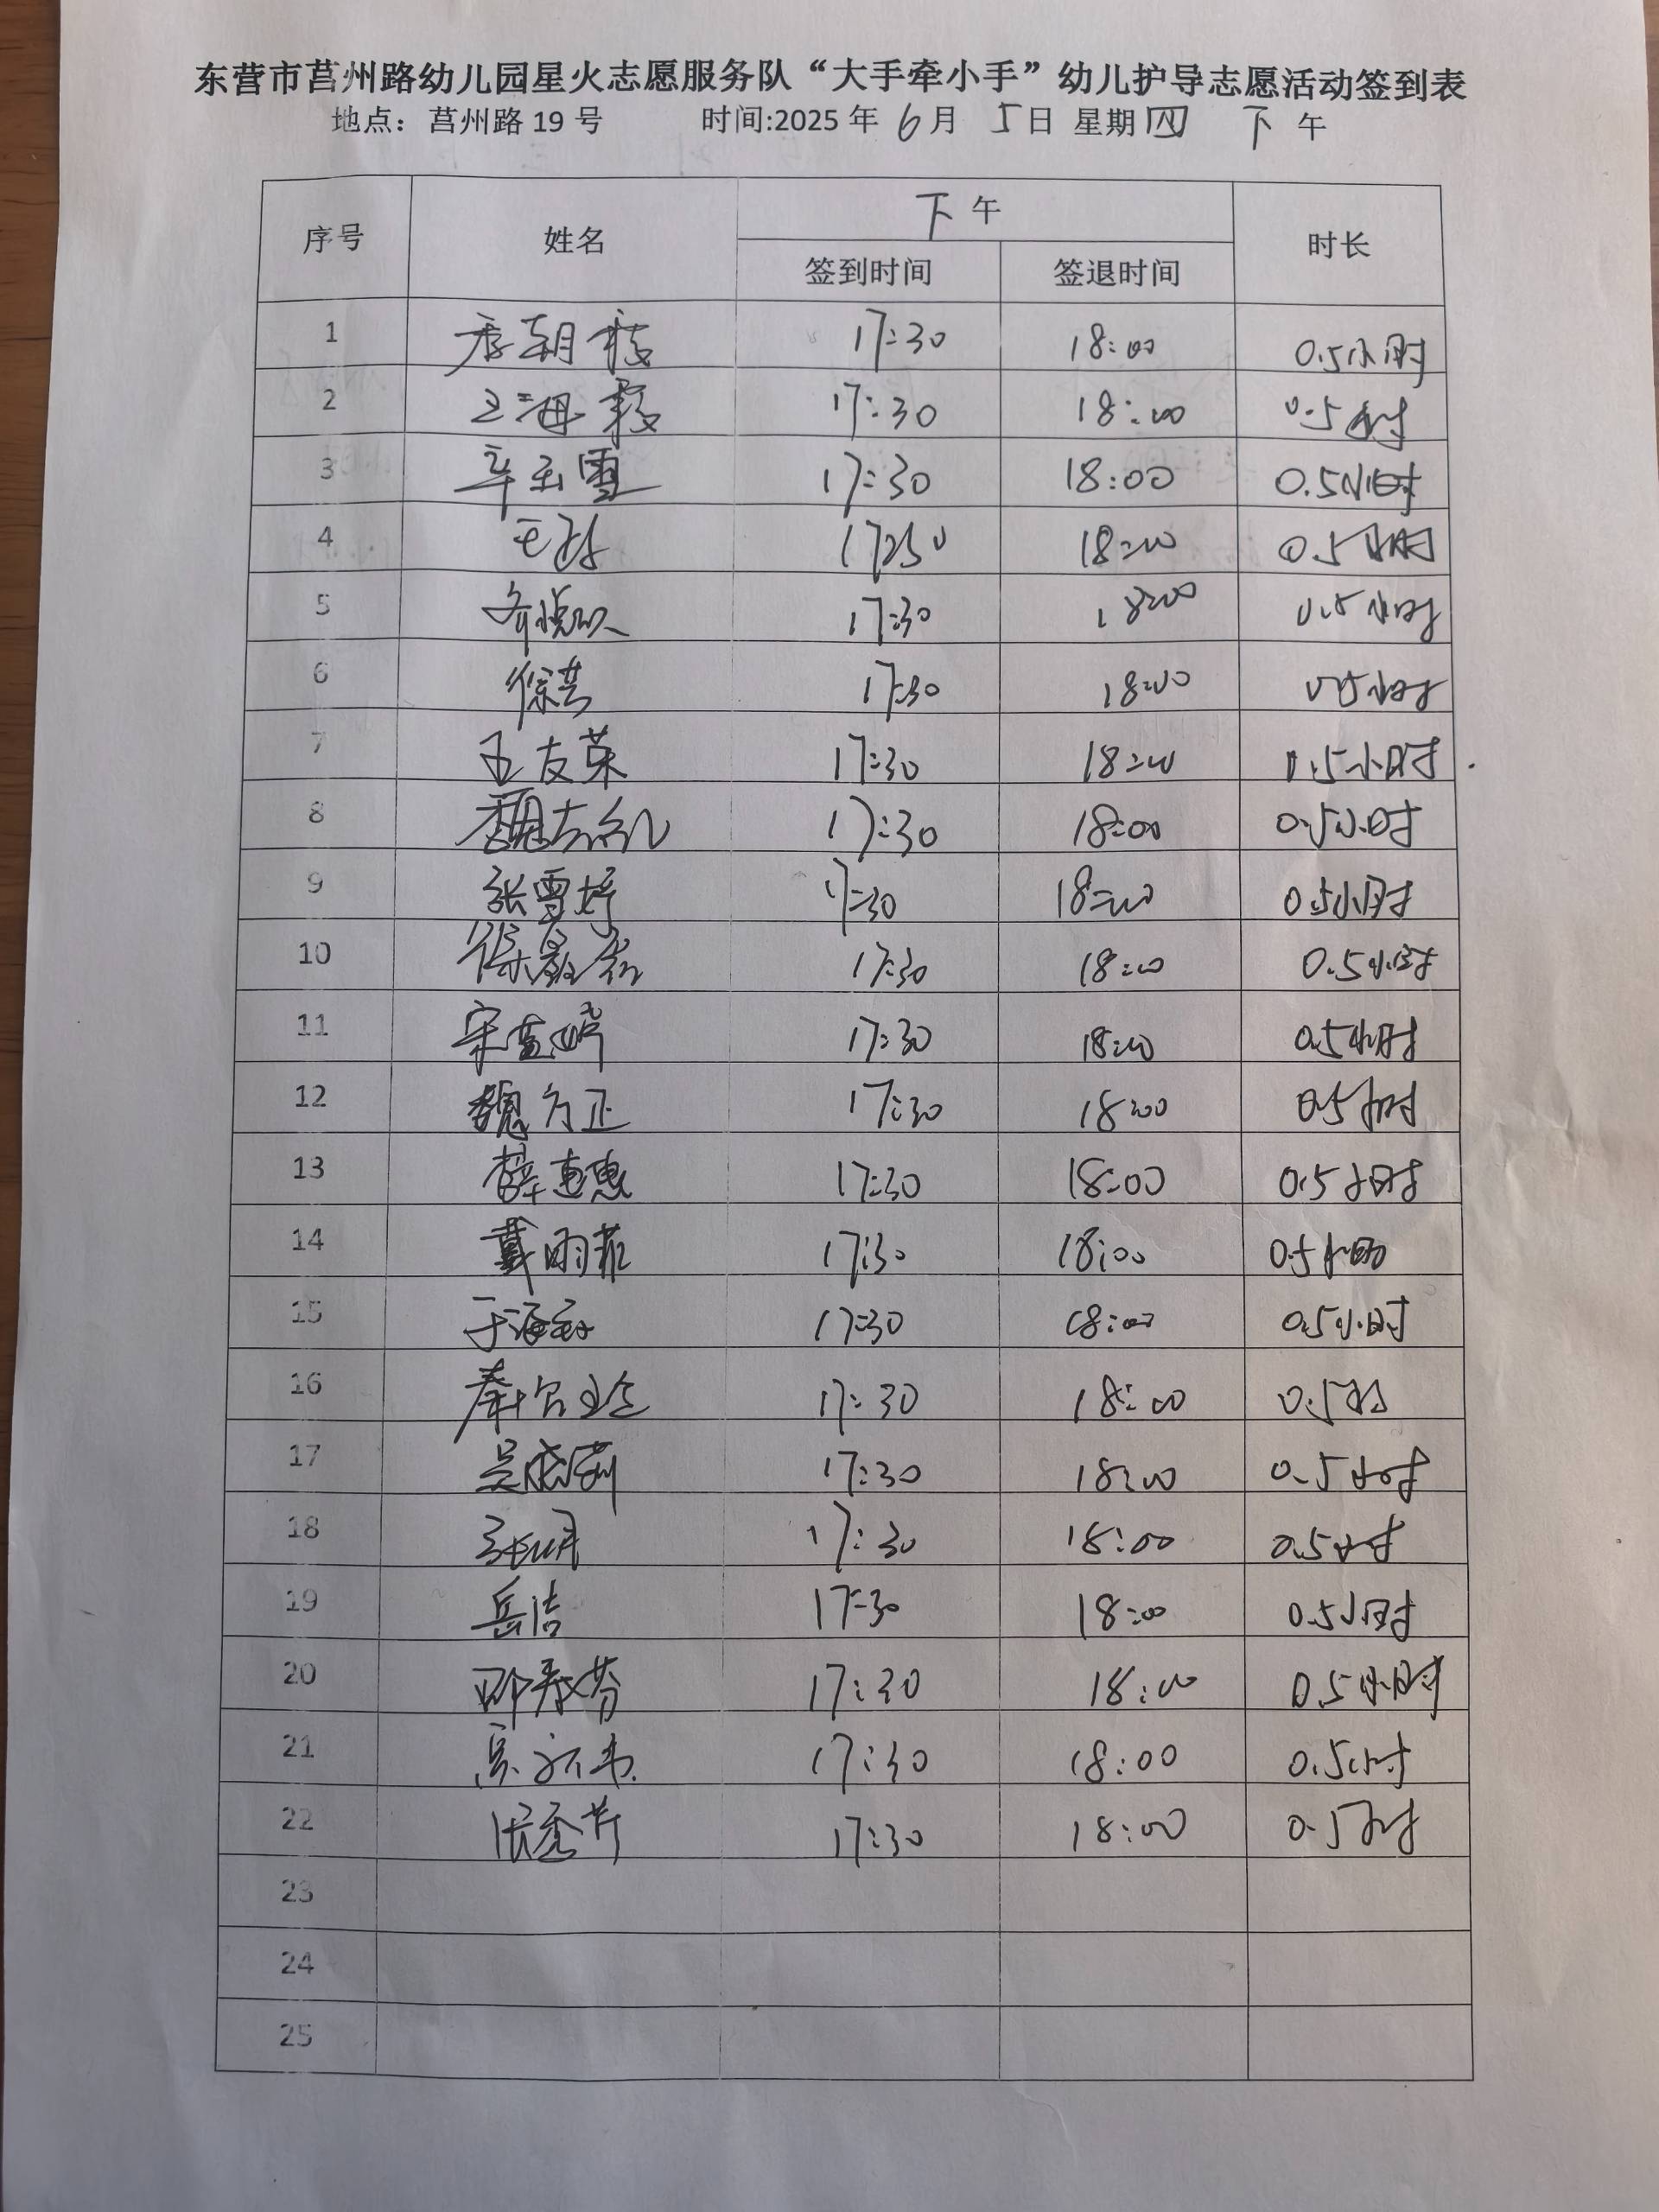 东营市莒州路幼儿园星火志愿服务队“大手牵小手”幼儿护导志愿活动签到表
地点：莒州路 19 号 时间:2025 年 6 月 5 日 星期 四 下 午
序号 姓名 下 午 时长
签到时间 签退时间
1 17:30 18:00 0.5小时
2 王海 17:30 18:00 0.5小时
3 辛玉雪 17:30 18:00 0.5小时
4 17:30 18:00 0.5小时
5 17:30 18:00 0.5小时
6 徐芸 17:30 18:00 0.5小时
7 王友荣 17:30 18:00 0.5小时
8 魏 17:30 18:00 0.5小时
9 张雪婷 17:30 18:00 0.5小时
10 徐 17:30 18:00 0.5小时
11 宋 17:30 18:00 0.5小时
12 魏方正 17:30 18:00 0.5小时
13 薛惠惠 17:30 18:00 0.5小时
14 戴雨菲 17:30 18:00 0.5小时
15 于海 17:30 18:00 0.5小时
16 秦 17:30 18:00 0.5
17 吴 17:30 18:00 0.5小时
18 张明 17:30 18:00 0.5小时
19 岳洁 17:30 18:00 0.5小时
20 17:30 18:00 0.5小时
21 17:30 18:00 0.5小时
22 17:30 18:00 0.5小时
23
24
25